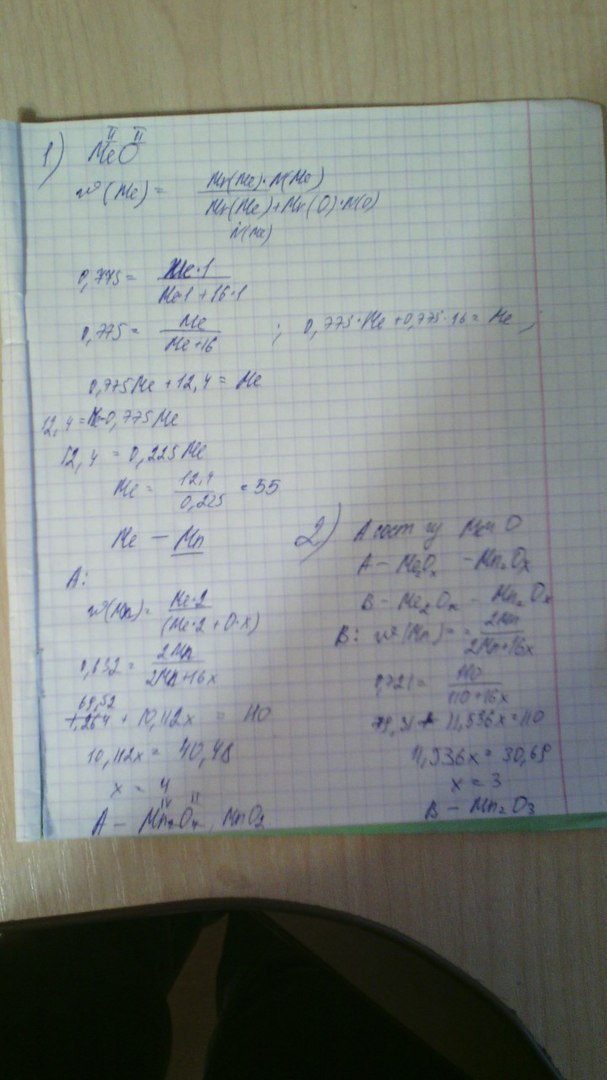 1) MeO
II II
w(Me) = Mr(Me)·N(Me) / Mr(Me)+Mr(O)·N(O)
N(Me)
0,775 = Me·1 / Me·1+16·1
0,775 = Me / Me+16 ; 0,775·Me+0,775·16 = Me ;
0,775Me + 12,4 = Me
12,4 = Me-0,775Me
12,4 = 0,225Me
Me = 12,4 / 0,225 = 55
Me — Mn
A:
w(Mn) = Me·2 / (Me·2 + O·x)
0,632 = 2Mn / 2Mn+16x
69,52
+ 10,112x = 110
10,112x = 40,48
x = 4
IV II
A — Mn2O4, MnO2
2) A сост из Me и O
A — Me2Ox — Mn2Ox
B — Me2Ox — Mn2Ox
B: w(Mn) = 2Mn / 2Mn+16x
0,721 = 110 / 110+16x
79,31 + 11,536x = 110
11,536x = 30,69
x = 3
B — Mn2O3